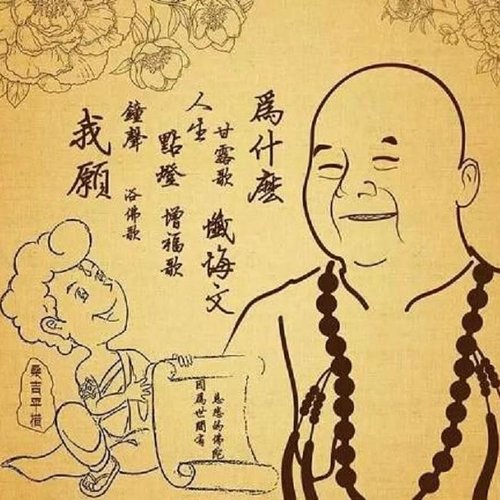 爲什麼
甘露歌
懺悔文
人生
點燈
增福歌
鐘聲
浴佛歌
我願
慈悲的佛陀
因爲世間有
桑吉平措